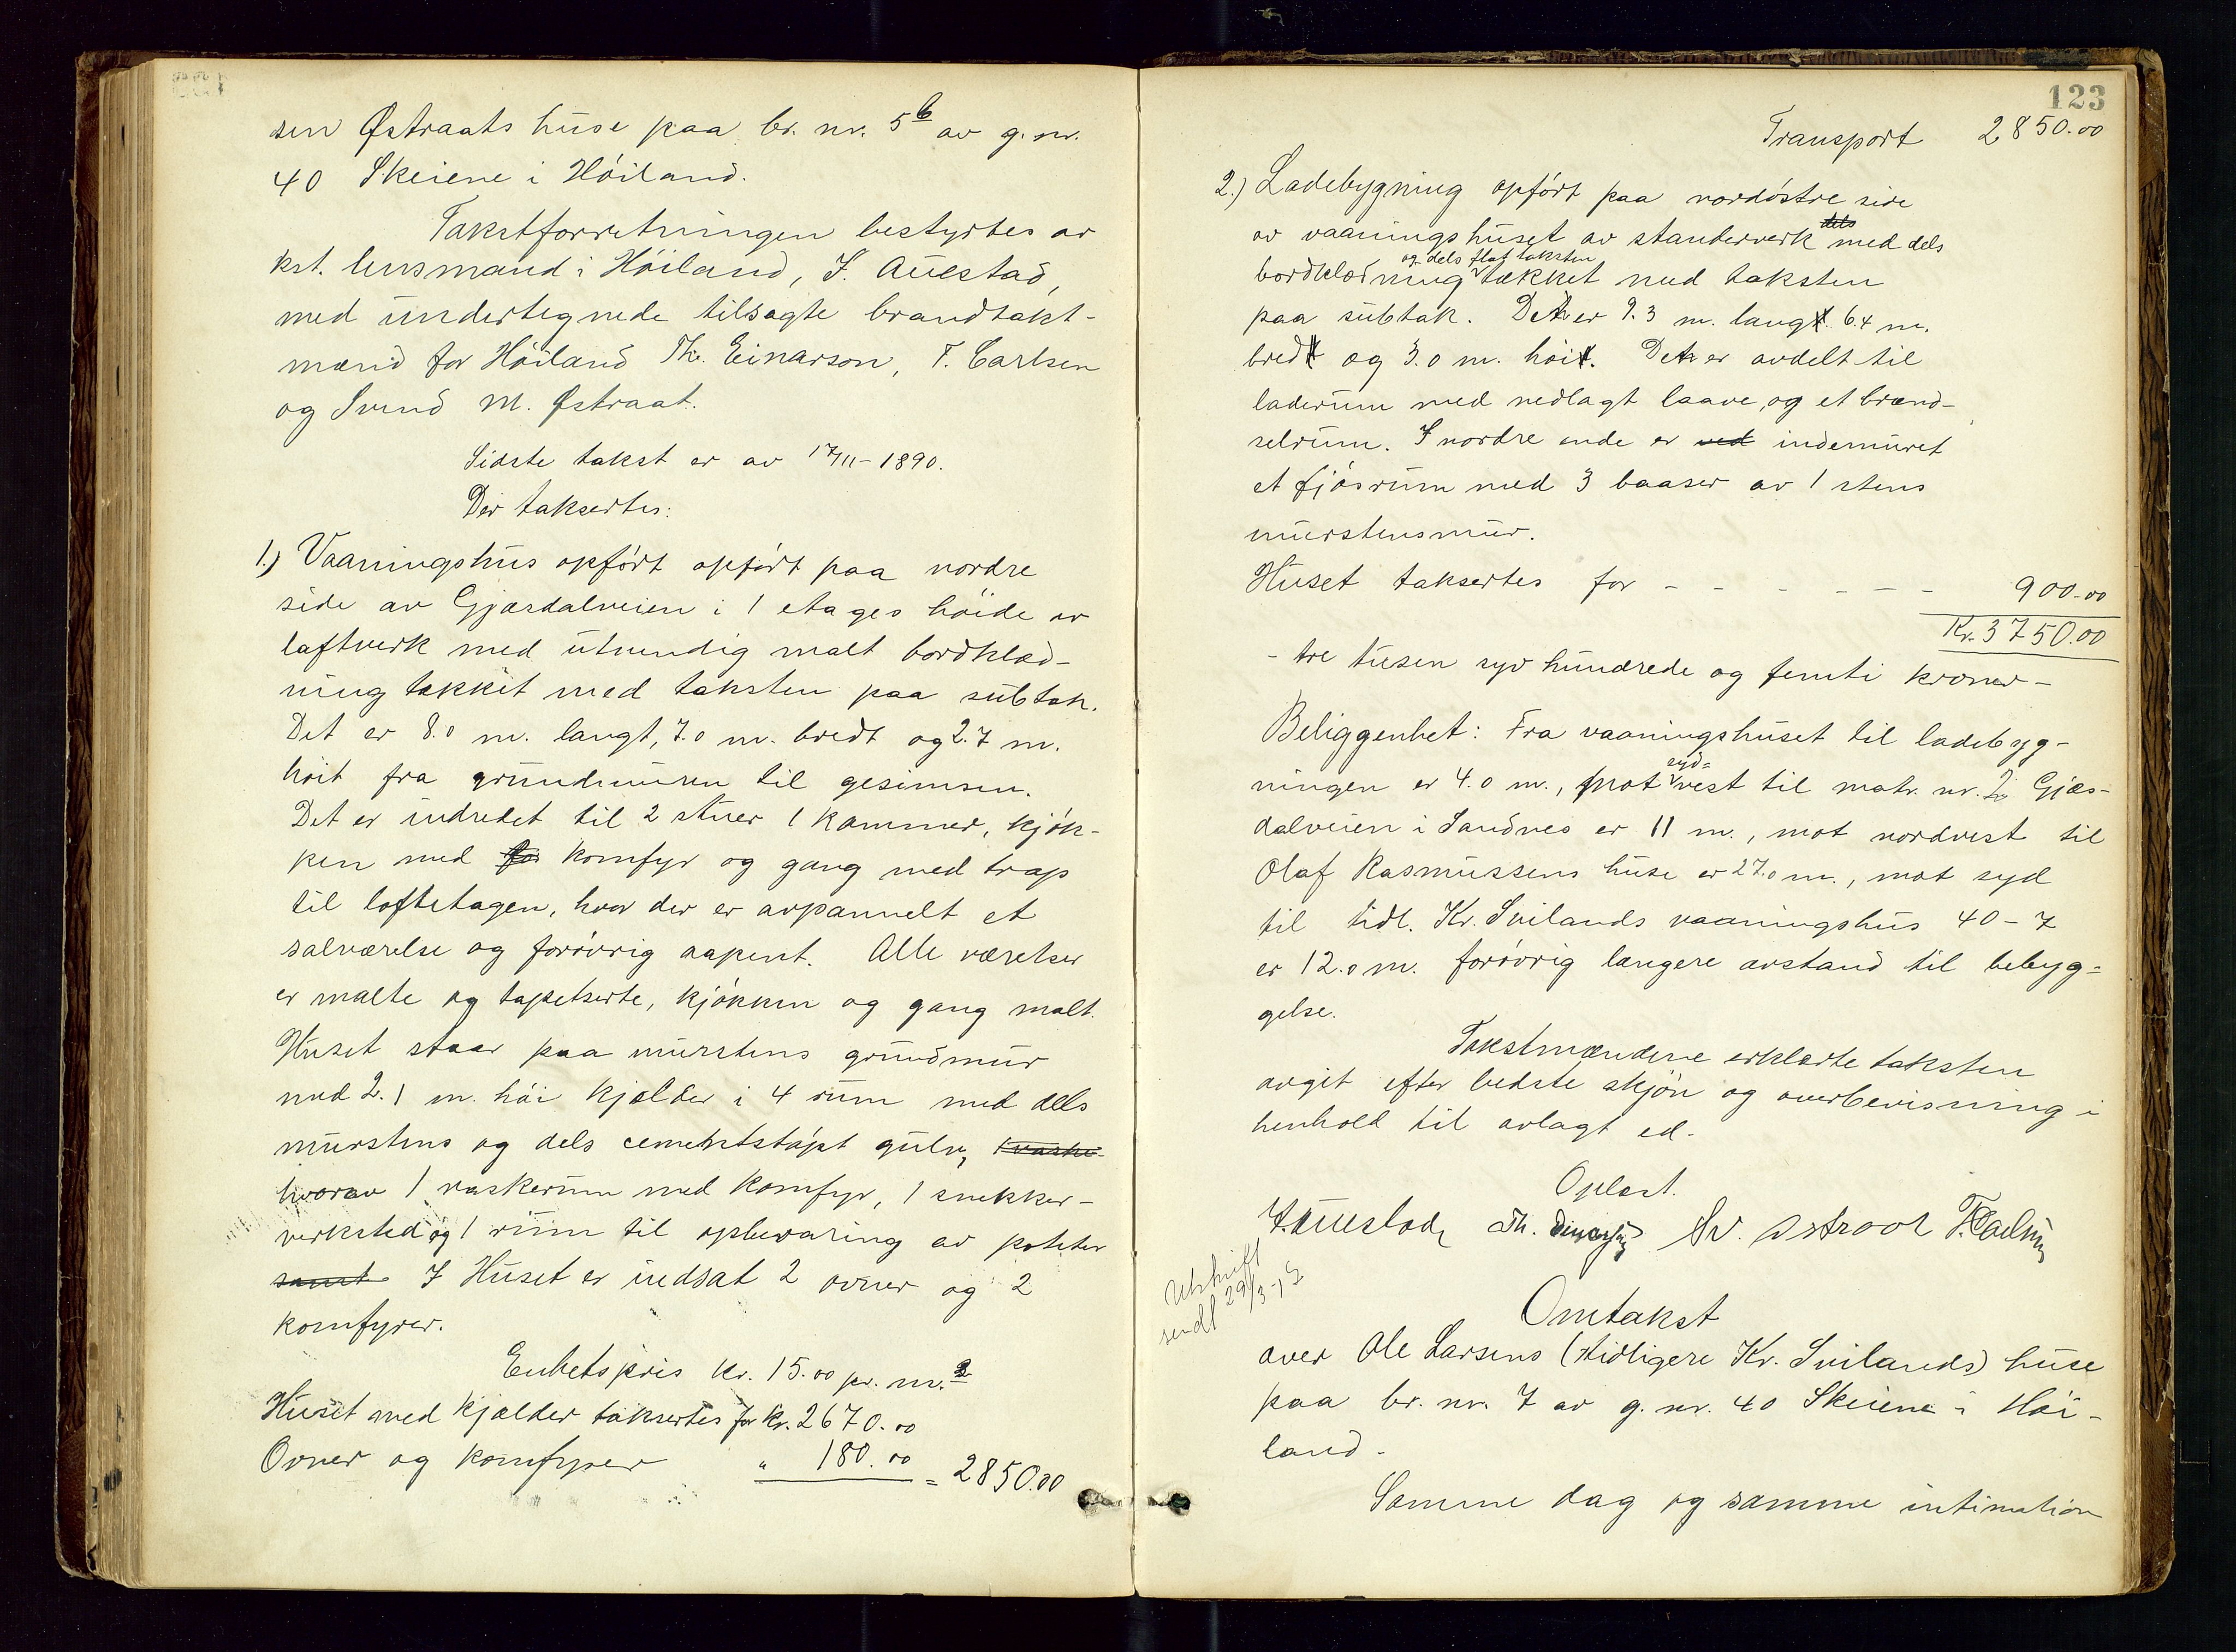 sen Østraats huse paa br. nr. 5 b av g. nr.
40 Skeiene i Höiland.
Takstforretningen bestyrtes av
kst. lensmand i Höiland, I. Auestad,
med undertegnede tilsagte brandtakst-
mænd for Höiland Th. Einarson, T. Carlsen
og Svend M. Østraat.
Sidste takst er av 17/11-1890.
Der taksertes:
1.) Vaaningshus opfört opfört paa nordre
side av Gjæsdalveien i 1 etages höide av
laftverk med utvendig malt bordklæd-
ning tækket med taksten paa subtak.
Det er 8.0 m. langt, 7.0 m. bredt og 2.7 m.
höit fra grundmuren til gesimsen.
Det er indredet til 2 stuer 1 kammer, kjök-
ken med komfyr og gang med trap
til loftetagen, hvor der er avpannelt et
salværelse og forövrig aapent. Alle værelser
er malte og tapetserte, kjökken og gang malt.
Huset staar paa murstens grundmur
med 2.1 m. höi kjelder i 4 rum med dels
murstens og dels cementstöpt gulv, 1 vaske-
hvorav 1 vaskerum med komfyr, 1 snekker-
verksted og 1 rum til opbevaring av poteter
samt I Huset er indsat 2 ovner og 2
komfyrer.
Enhetspris kr. 15.00 pr. m.2
Huset med kjælder taksertes for kr. 2670.00
Ovner og komfyrer " 180.00 = 2850.00
123
Transport 2850.00
2.) Ladebygning opfört paa nordöstre side
dels
av vaaningshuset av standerverk med dels
og dels flat taksten
bordklædning tækket med taksten
paa subtak. Den er 9.3 m. lang. 6.4 m.
bred og 3.0 m. höi. Den er avdelt til
laderum med nedlagt laave, og et brænd-
selrum. I nordre ende er ved indemuret
et fjösrum med 3 baaser av 1 stens
murstensmur.
Huset taksertes for - - - - - - - 900.00
Kr. 3750.00
- tre tusen syv hundrede og femti kroner -
Beliggenhet: Fra vaaningshuset til ladebyg-
syd-
ningen er 4.0 m., mot vest til matr. nr. 2 Gjæs-
dalveien i Sandnes er 11 m., mot nordvest til
Olaf Rasmussens huse er 27.0 m., mot syd
til tidl. Kr. Svilands vaaningshus 40-7
er 12.0 m. forövrig længere avstand til bebyg-
gelse.
Takstmændene erklærte taksten
avgit efter bedste skjön og overbevisning i
henhold til avlagt ed.
Oplæst.
I. Auestad, Th. Einarson Sv. Østraat T. Carlsen
Utskrift
sendt 29/3-15
Omtakst
over Ole Larsens (tidligere Kr. Svilands) huse
paa br. nr. 7 av g. nr. 40 Skeiene i Höi-
land.
Samme dag og samme intimation